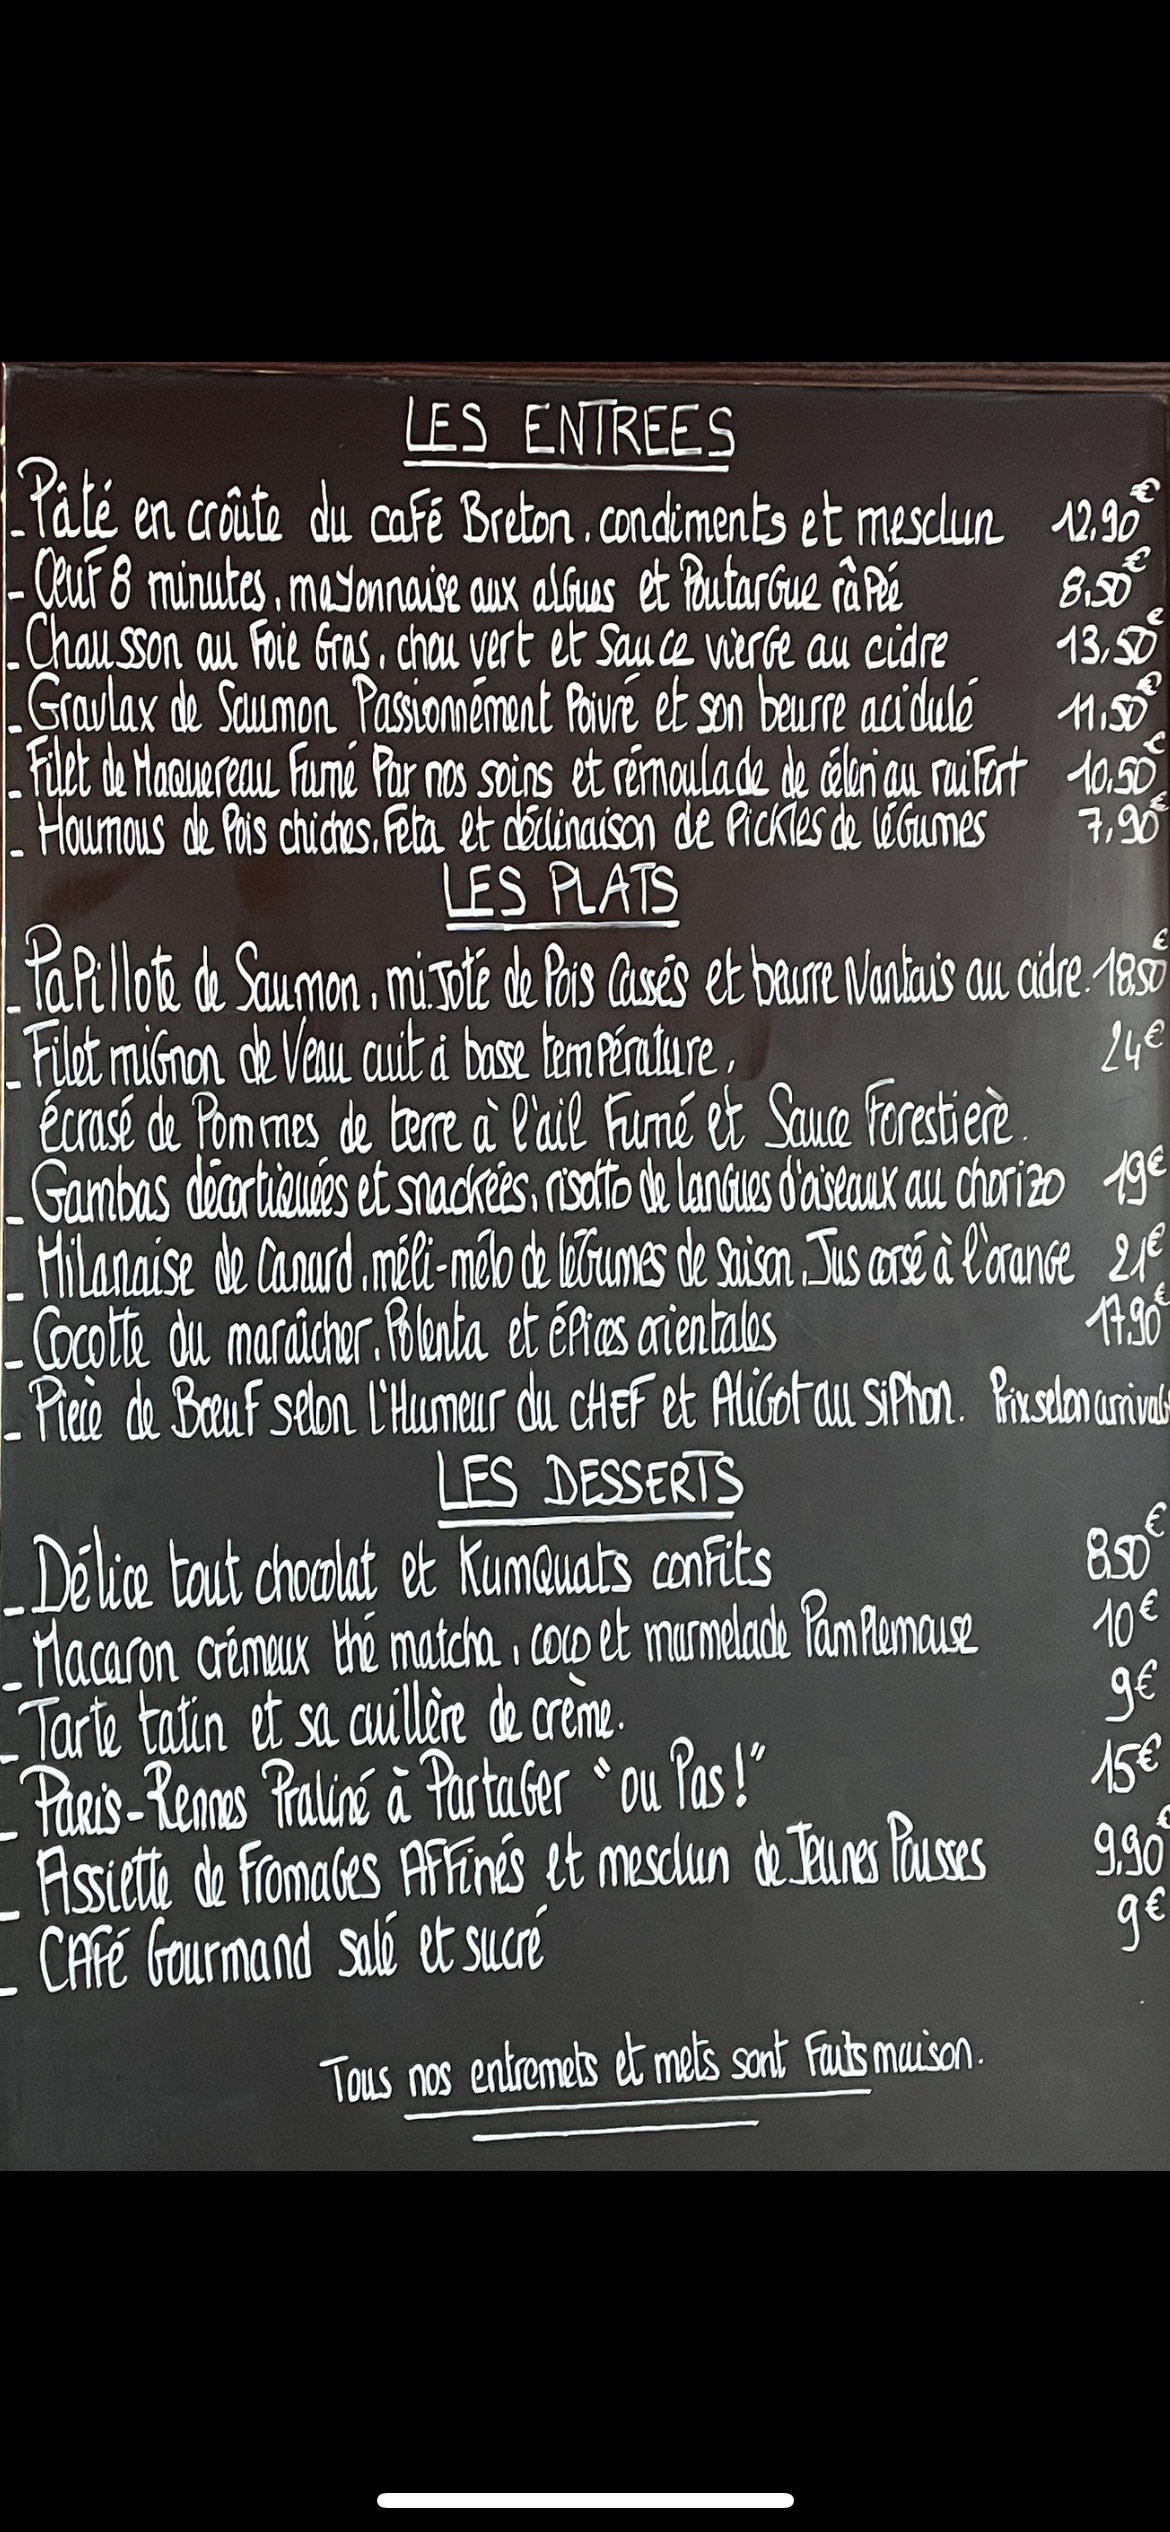 LES ENTREES
- Pâté en croûte du café Breton, condiments et mesclun 12,90€
- Œuf 8 minutes, mayonnaise aux algues et Poutargue râpée 8,50€
- Chausson au Foie Gras, chou vert et Sauce vierge au cidre 13,50€
- Gravlax de Saumon Passionnément Poivré et son beurre acidulé 11,50€
- Filet de Maquereau Fumé Par nos soins et rémoulade de céleri au raifort 10,50€
- Houmous de Pois chiches, Feta et déclinaison de Pickles de légumes 7,90€
LES PLATS
- Papillote de Saumon, mijoté de Pois Cassés et beurre Nantais au cidre. 18,50€
- Filet mignon de Veau cuit à basse température, 24€
écrasé de Pommes de terre à l'ail Fumé et Sauce Forestière.
- Gambas décortiquées et snackées, risotto de langues d'oiseaux au chorizo 19€
- Milanaise de Canard, méli-mélo de légumes de Saison, Jus corsé à l'orange 21€
- Cocotte du maraîcher, Polenta et épices orientales 17,90€
- Pièce de Bœuf selon l'Humeur du CHEF et Aligot au Siphon. Prix selon arrivage
LES DESSERTS
- Délice tout chocolat et Kumquats confits 8,50€
- Macaron crémeux thé matcha, coco et marmelade Pamplemousse 10€
- Tarte tatin et sa cuillère de crème. 9€
- Paris-Rennes Praliné à Partager "ou Pas!" 15€
- Assiette de Fromages Affinés et mesclun de Jeunes Pousses 9,90€
- Café Gourmand salé et sucré 9€
Tous nos entremets et mets sont Faits maison.